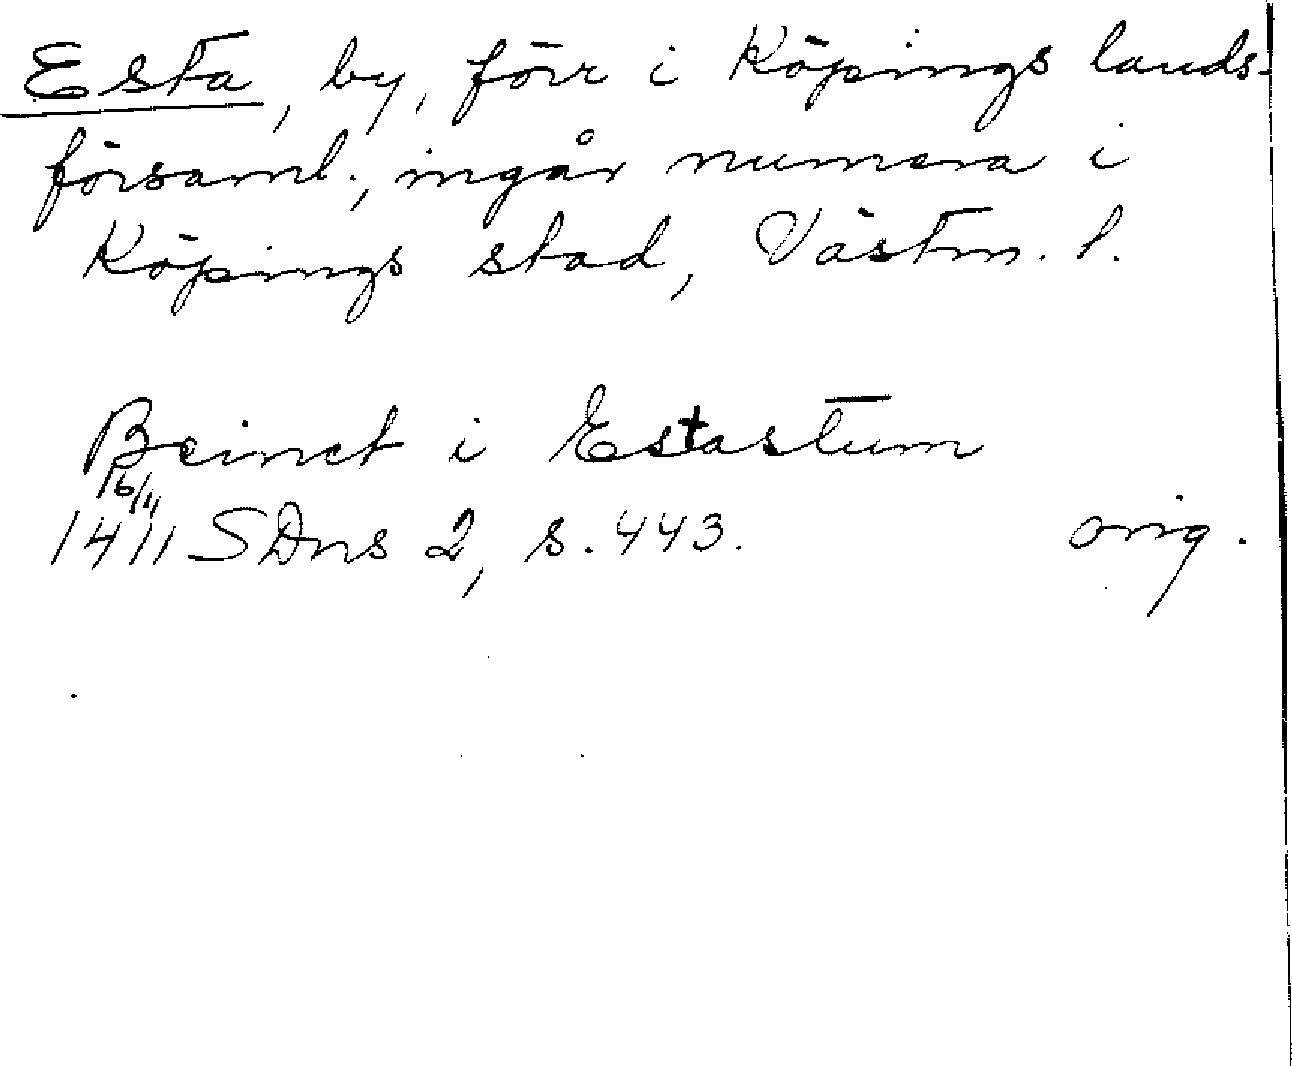 Esta, by, förr i Köpings lands-
församl., ingår numera i
Köpings stad, Västm. l.
Beinct i Estastum
16/11
1411 SDns 2, s. 443. orig.